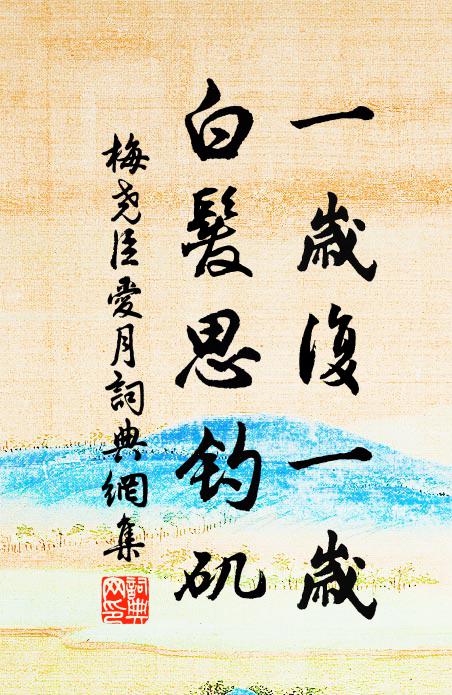 一歲復一歲
白髮思釣磯
梅堯臣愛月詞典網集
詞典網印